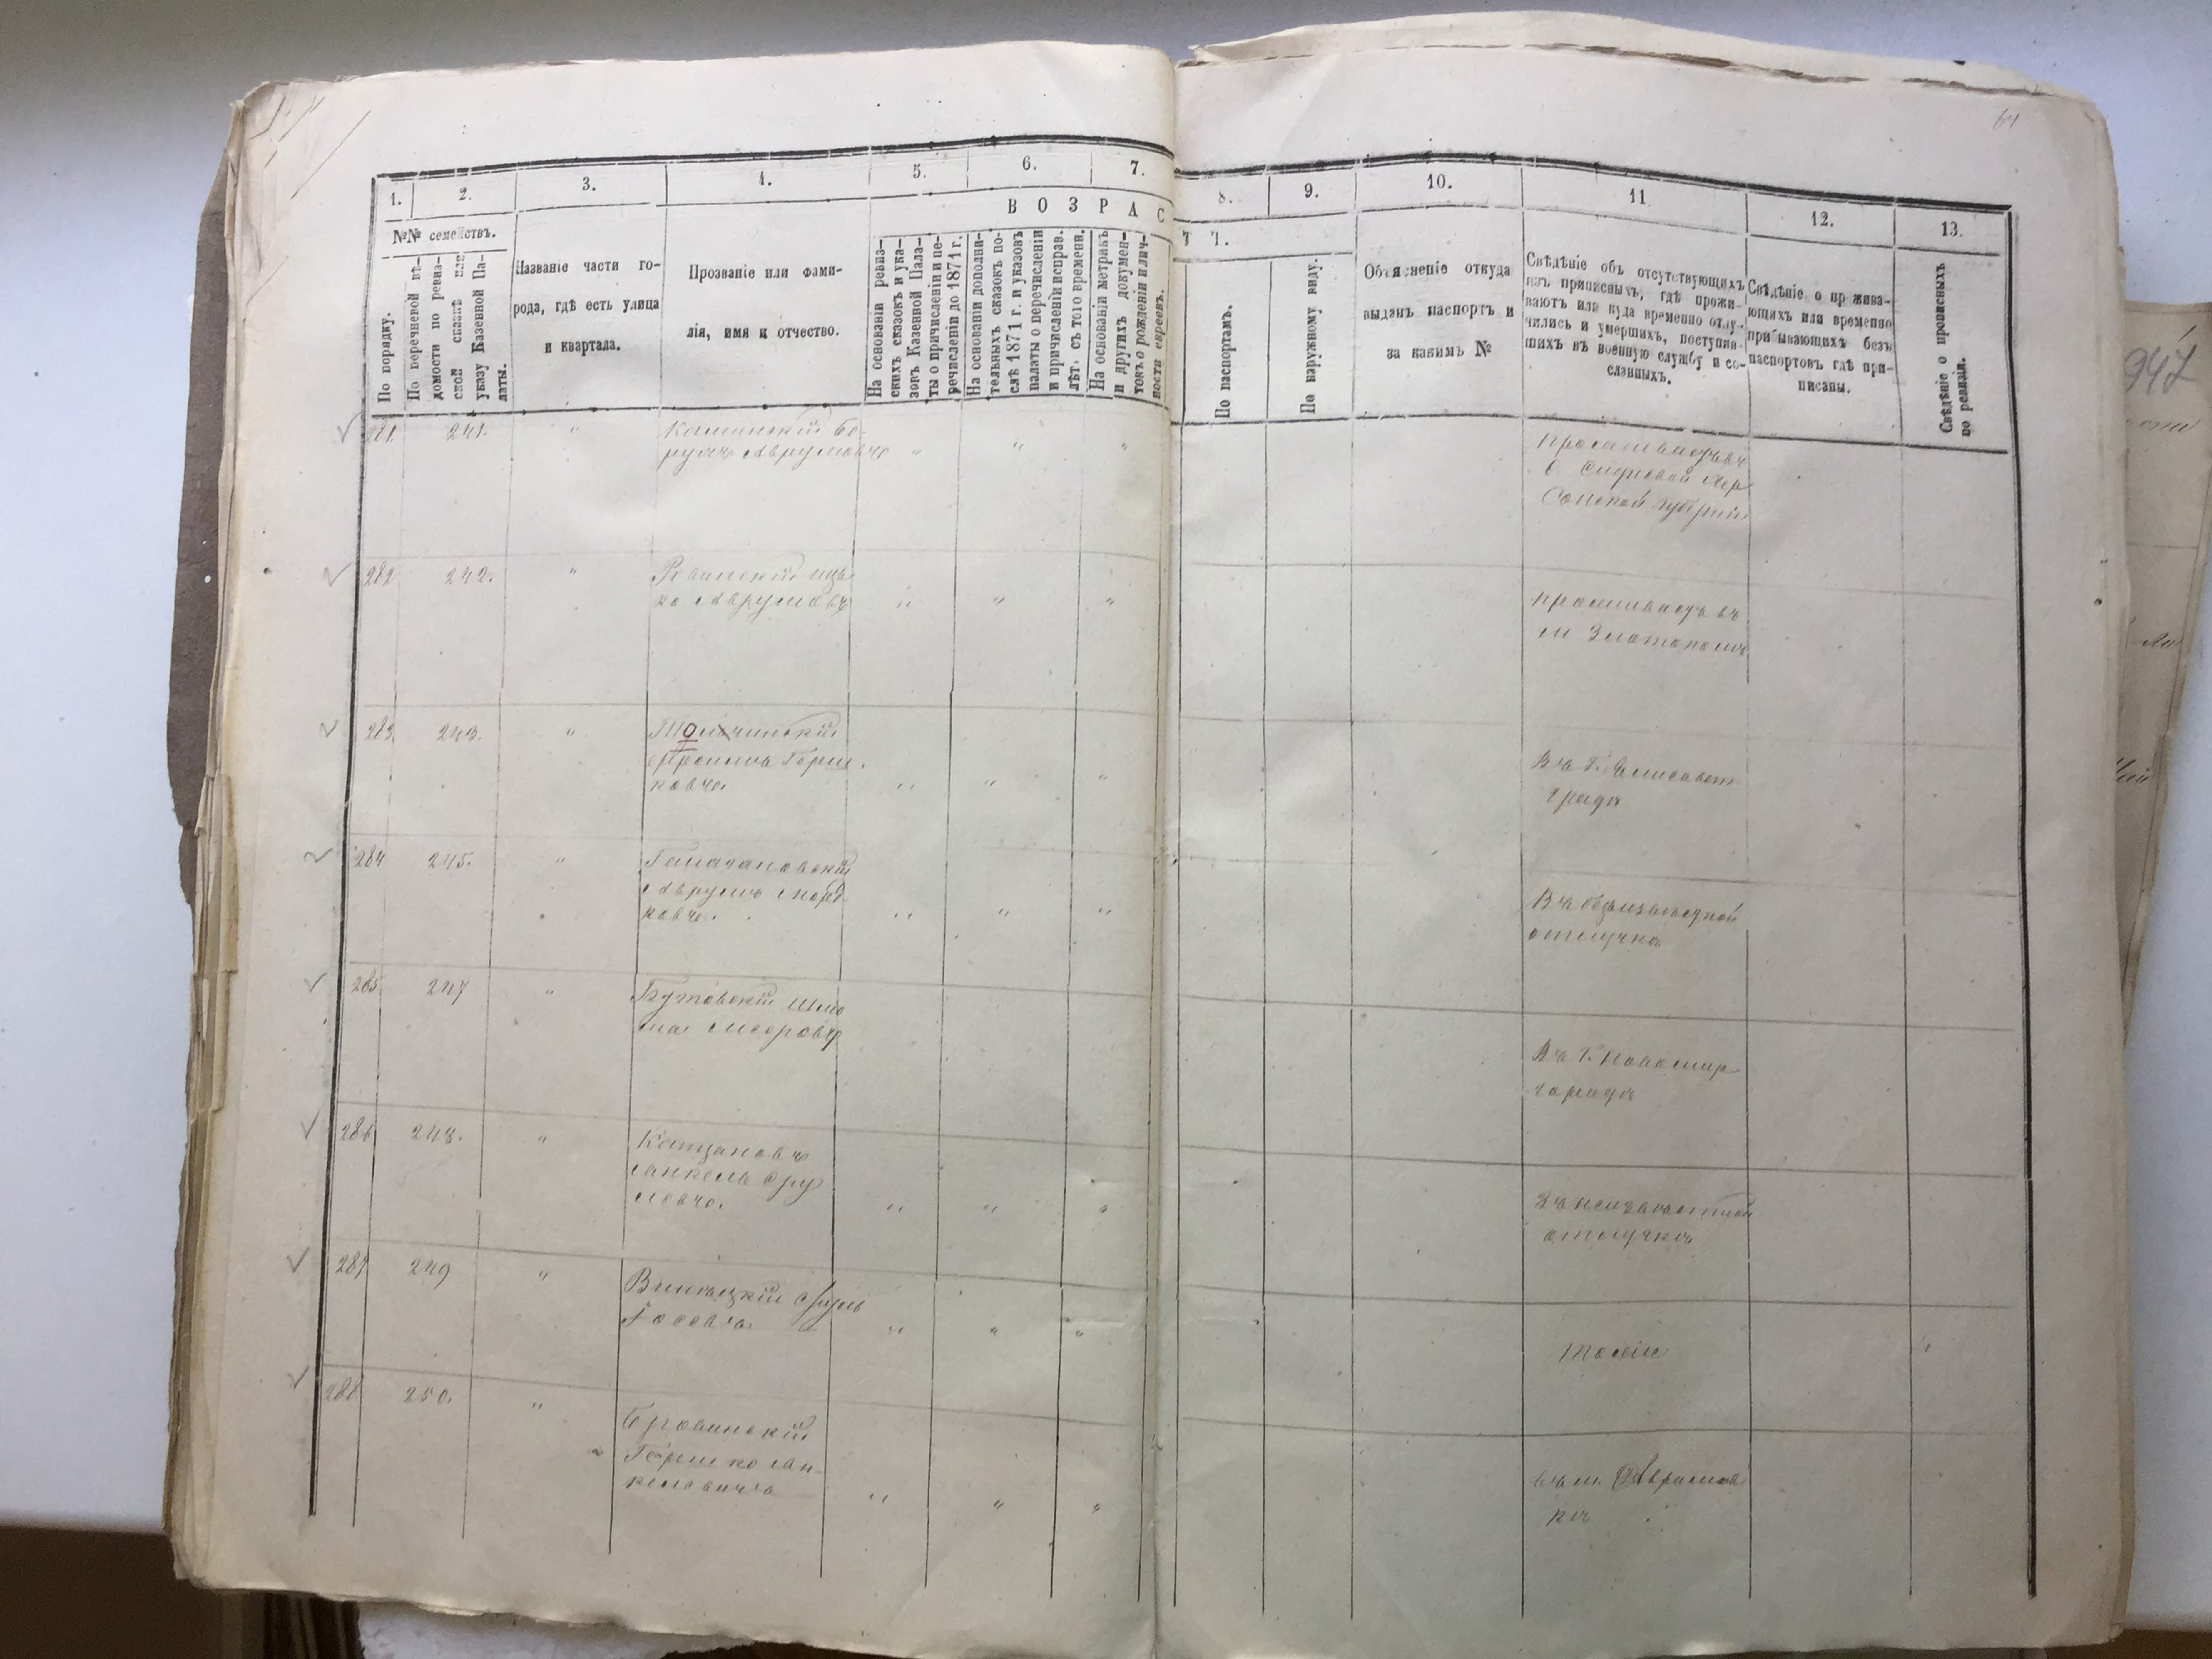 64
1.
2.
3.
4.
5.
6.
7.
8.
9.
10.
11
12.
13.
В О З Р А С
Т Ъ.
№№ семействъ.
По порядку.
По перечневой вѣ-
домости по ревиз-
ской сказкѣ или
указу Казенной Па-
латы.
Названіе части го-
рода, гдѣ есть улица
и квартала.
Прозваніе или фами-
лія, имя и отчество.
На основаніи ревиз-
скихъ сказокъ и ука-
зокъ Казенной Пала-
ты о причисленіи и пе-
речисленіи до 1871 г.
На основаніи дополни-
тельныхъ сказокъ по-
слѣ 1871 г. и указовъ
палаты о перечисленіи
и причисленіи исправ.
лѣт. съ того времени.
На основаніи метрикъ
и другихъ докумен-
токъ о рожденіи и лич-
ности евреевъ.
По паспортамъ.
По наружному виду.
Объясненіе откуда
выданъ паспортъ и
за какимъ №
Свѣдѣніе объ отсутствующихъ
изъ приписныхъ, гдѣ прожи-
ваютъ или куда временно отлу-
чились и умершихъ, поступив-
шихъ въ военную службу и со-
сланныхъ.
Свѣдѣніе о прожива-
ющихъ или временно
прибывающихъ безъ
паспортовъ гдѣ при-
писаны.
Свѣдѣніе о прописныхъ
по ревизіи.
281. 241. "
Каминскій Бо-
рухъ Аврумовъ " " "
проживаетъ въ
Хер
сонской губерніи
282 242. "
Ровинскій Иць
ко Аврумовъ " " "
проживаетъ въ
м Златополь
283 243. "
Герш
ковъ. " " "
Въ г. Елисавет
градѣ
284 245. "
Аврумъ Морд
ковъ. " " "
Въ безызвѣстной
отлучкѣ
285 247 "
Бутовскій Шлё
ма
Въ г. Новомир
городѣ
286 248. "
Кацановъ
Янкель Сру
левъ. " " "
Въ неизвестной
отлучкѣ
287 249 "
Винницкій Сруль
Іосевъ " " "
тоже
288 250. "
Бровинскій
Гершко Ян
келевичъ " " "
въ м. Аврамов
кѣ
947